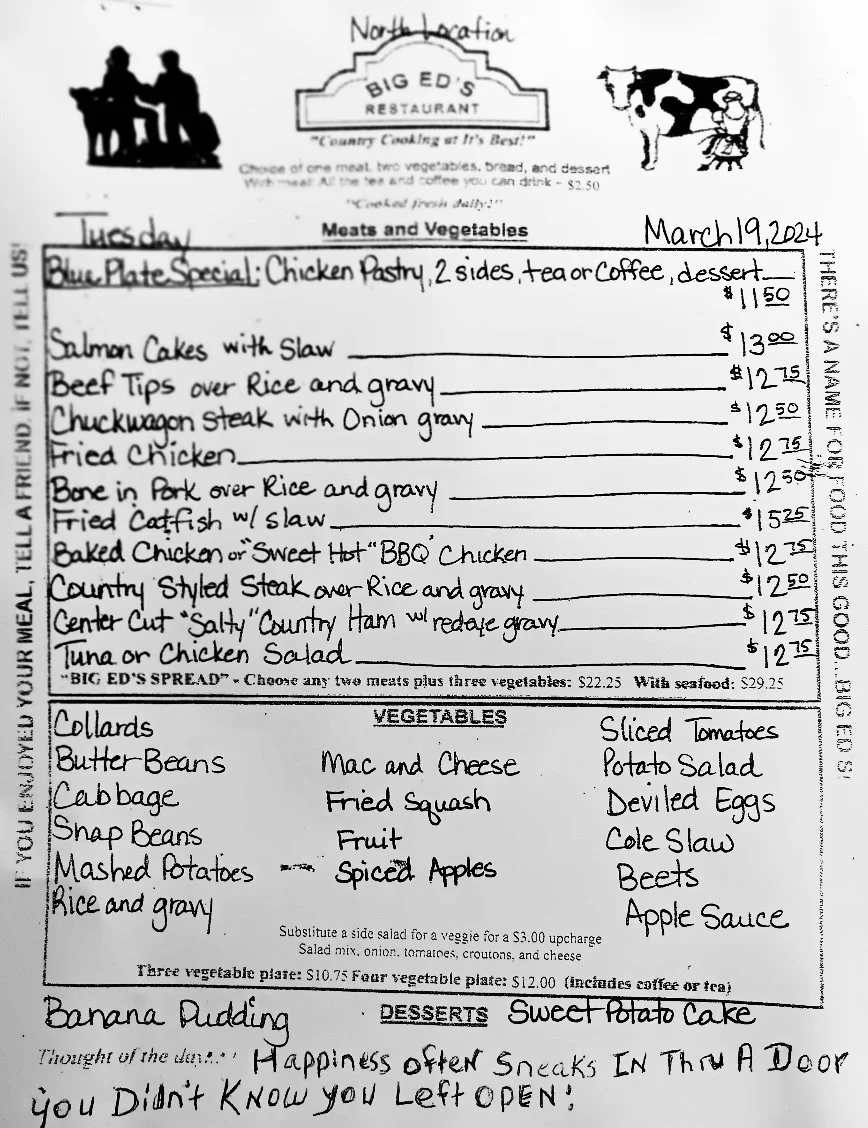 North Location
BIG ED'S
RESTAURANT
"Country Cooking at It's Best!"
Choice of one meat, two vegetables, bread, and dessert
With meal: All the tea and coffee you can drink - $2.50
"Cooked fresh daily!"
Tuesday
Meats and Vegetables
March 19, 2024
Blue Plate Special: Chicken Pastry, 2 sides, tea or coffee, dessert
$11.50
Salmon Cakes with Slaw $13.00
Beef Tips over Rice and gravy $12.75
Chuckwagon Steak with Onion gravy $12.50
Fried Chicken $12.75
Bone in Pork over Rice and gravy $12.50
Fried Catfish w/ slaw $15.25
Baked Chicken or "Sweet Hot" BBQ' Chicken $12.75
Country Styled Steak over Rice and gravy $12.50
Center Cut "Salty" Country Ham w/ redeye gravy $12.75
Tuna or Chicken Salad $12.75
"BIG ED'S SPREAD" - Choose any two meats plus three vegetables: $22.25 With seafood: $29.25
IF YOU ENJOYED YOUR MEAL, TELL A FRIEND. IF NOT, TELL US!
THERE'S A NAME FOR FOOD THIS GOOD...BIG ED'S!
VEGETABLES
Collards
Butter Beans
Cabbage
Snap Beans
Mashed Potatoes
Rice and gravy
Mac and Cheese
Fried Squash
Fruit
Spiced Apples
Sliced Tomatoes
Potato Salad
Deviled Eggs
Cole Slaw
Beets
Apple Sauce
Substitute a side salad for a veggie for a $3.00 upcharge
Salad mix, onion, tomatoes, croutons, and cheese
Three vegetable plate: $10.75 Four vegetable plate: $12.00 (includes coffee or tea)
Banana Pudding DESSERTS Sweet Potato Cake
Thought of the day: Happiness often Sneaks IN Thru A Door
you Didn't Know you Left OPEN!